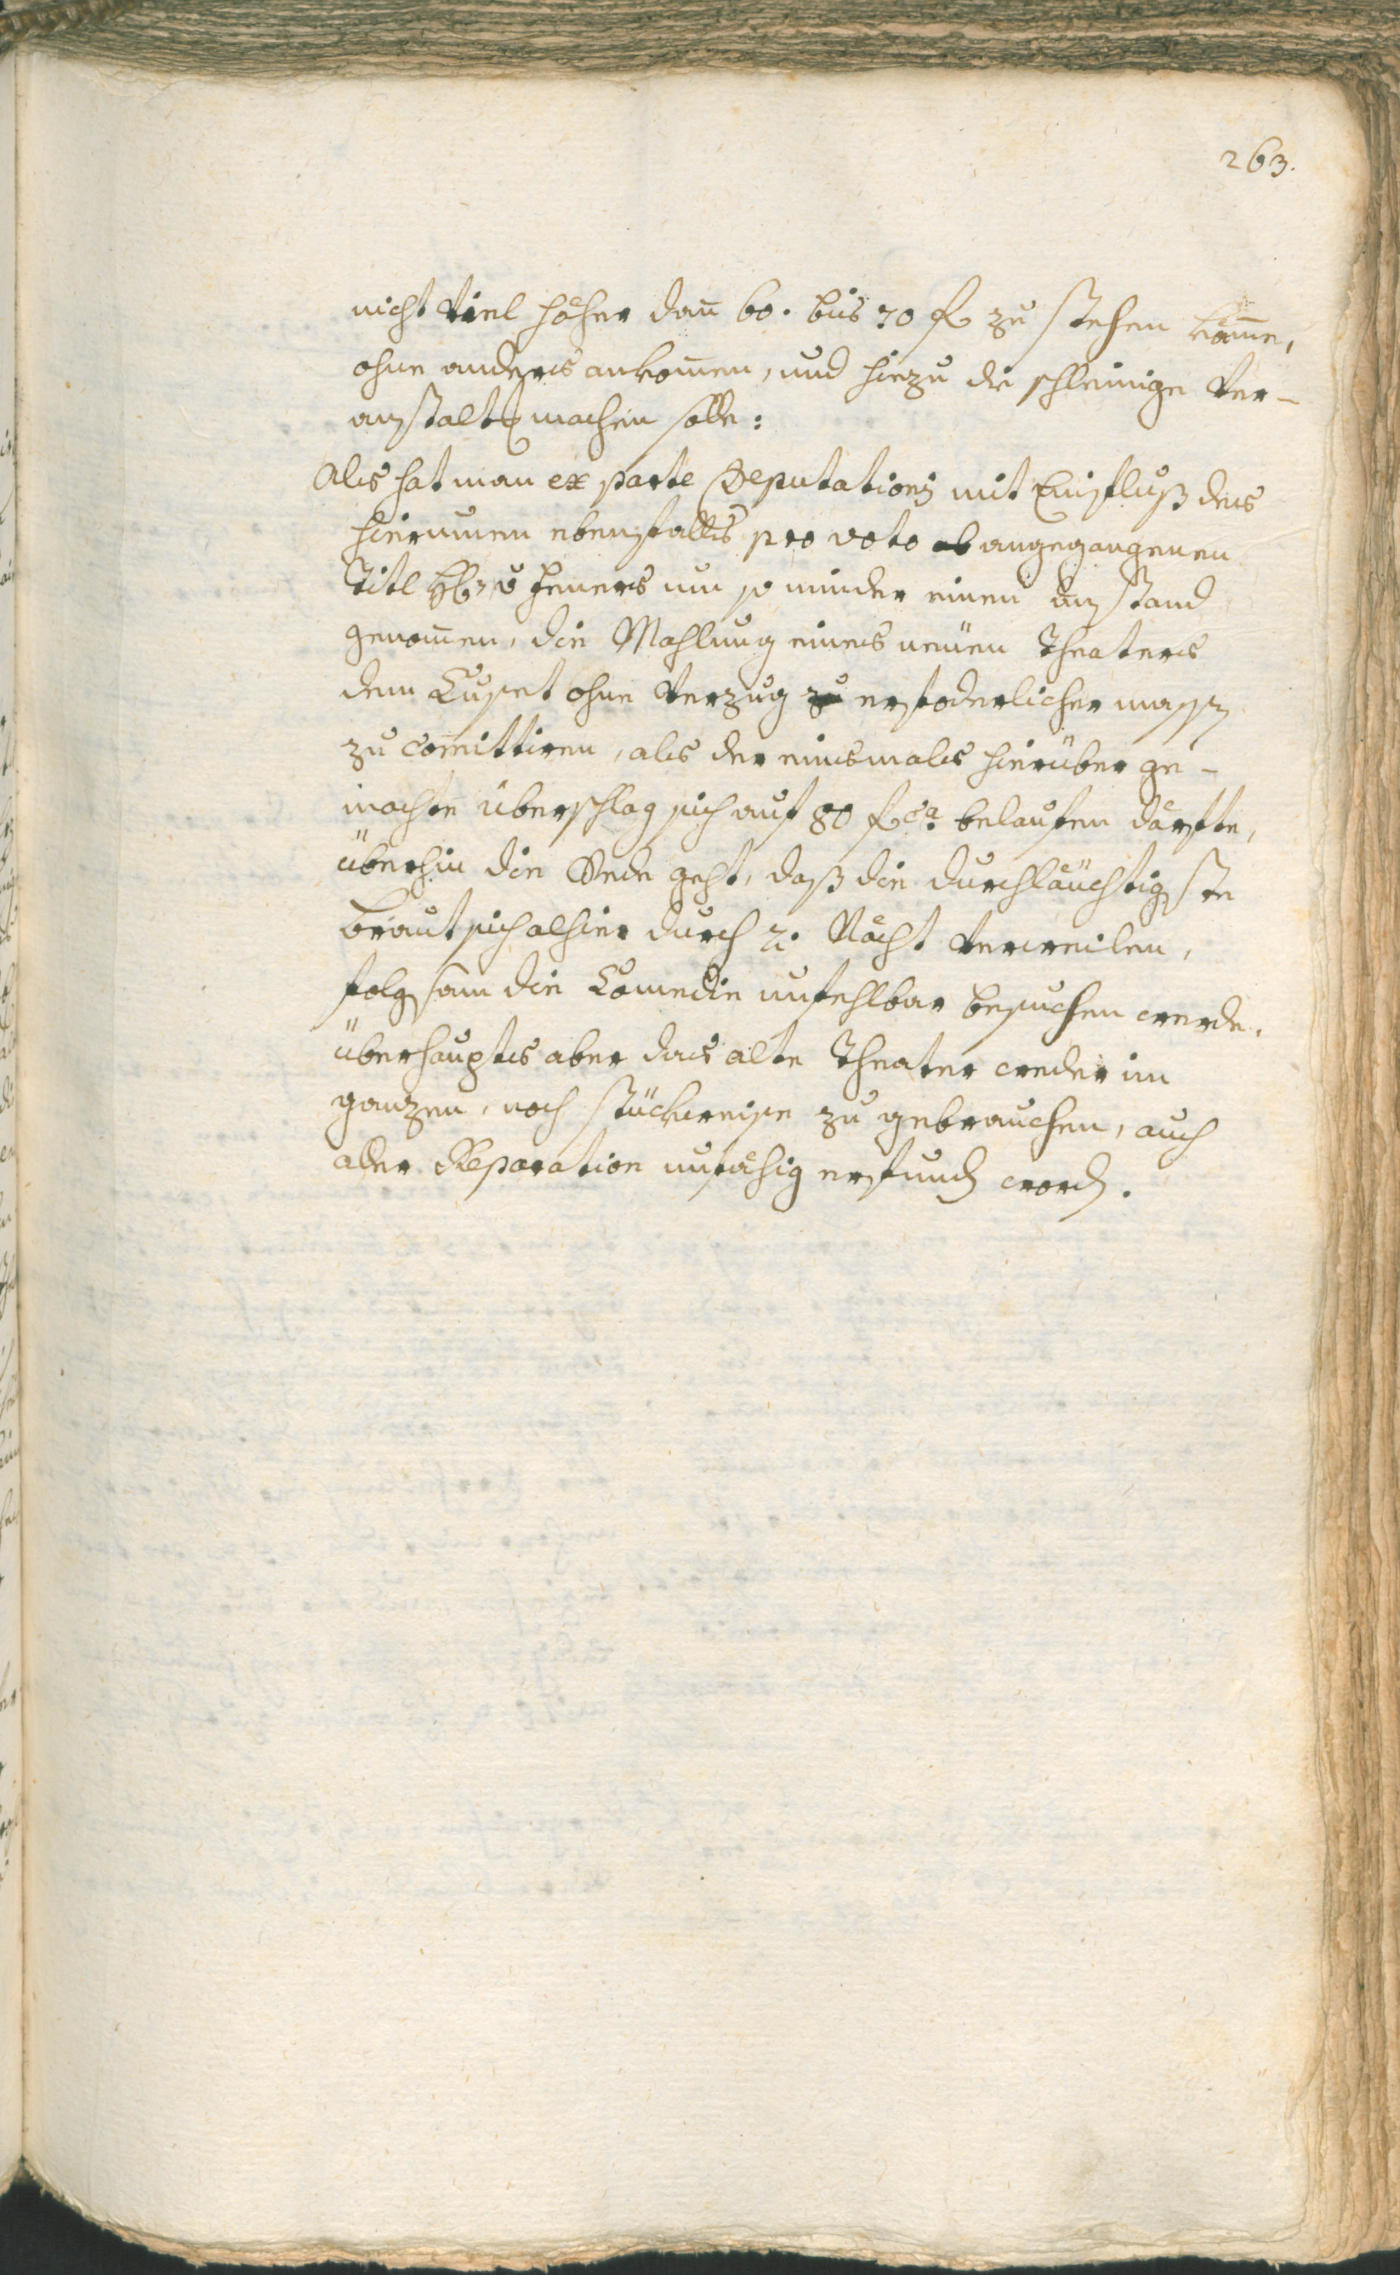 263.
nicht viel höher dan̄ 60. bis 70 f zu stehen kom̄e,
ohne anders ankom̄en, und hiezu die schleinige Ver-
anstalt machen solle:
Als hat man ex parte Deputationis mit Einfluß des
hierum̄en ebenfalls pro voto angegangenen
Titl H: v Heuers um so minder einen anstand
genom̄en, die Mahlung eines neuen Theaters
dem Cuset ohne Verzug erfoderlicher massen
zu com̄ittiren, als der einsmals hierüber ge-
machte überschlag sich auf 80 f ca. belaufen därfte,
überhin die Rede geht, daß die durchläuchtigste
braut sich alhier durch 2. Nächt verweilen,
folgsam die Comedie unfehlbar besuchen werde,
überhaupts aber das alte Theater weder im
ganzen, noch stückweise zu gebrauchen, auch
aller Reparation unfähig erfunden worden.